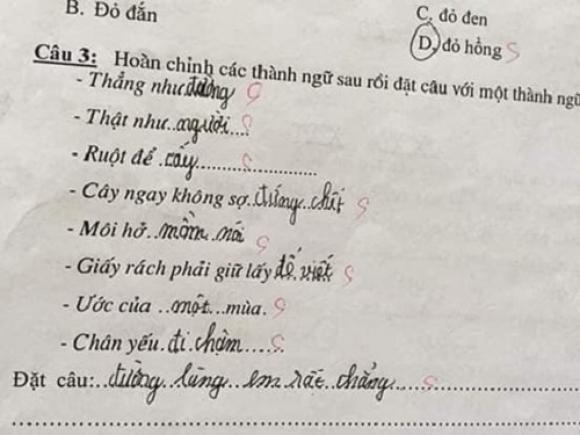 B. Đỏ đắn
C. đỏ đen
D. đỏ hồng S
Câu 3: Hoàn chỉnh các thành ngữ sau rồi đặt câu với một thành ngữ
- Thẳng như đường S
- Thật như..người.... S
- Ruột để .cấy.................... S
- Cây ngay không sợ.đứng..chết S
- Môi hở..mồm..nói S
- Giấy rách phải giữ lấy để viết S
- Ước của ..một...mùa. S
- Chân yếu.đi.chậm...... S
Đặt câu:..đường..làng..em..rất..thẳng.... S